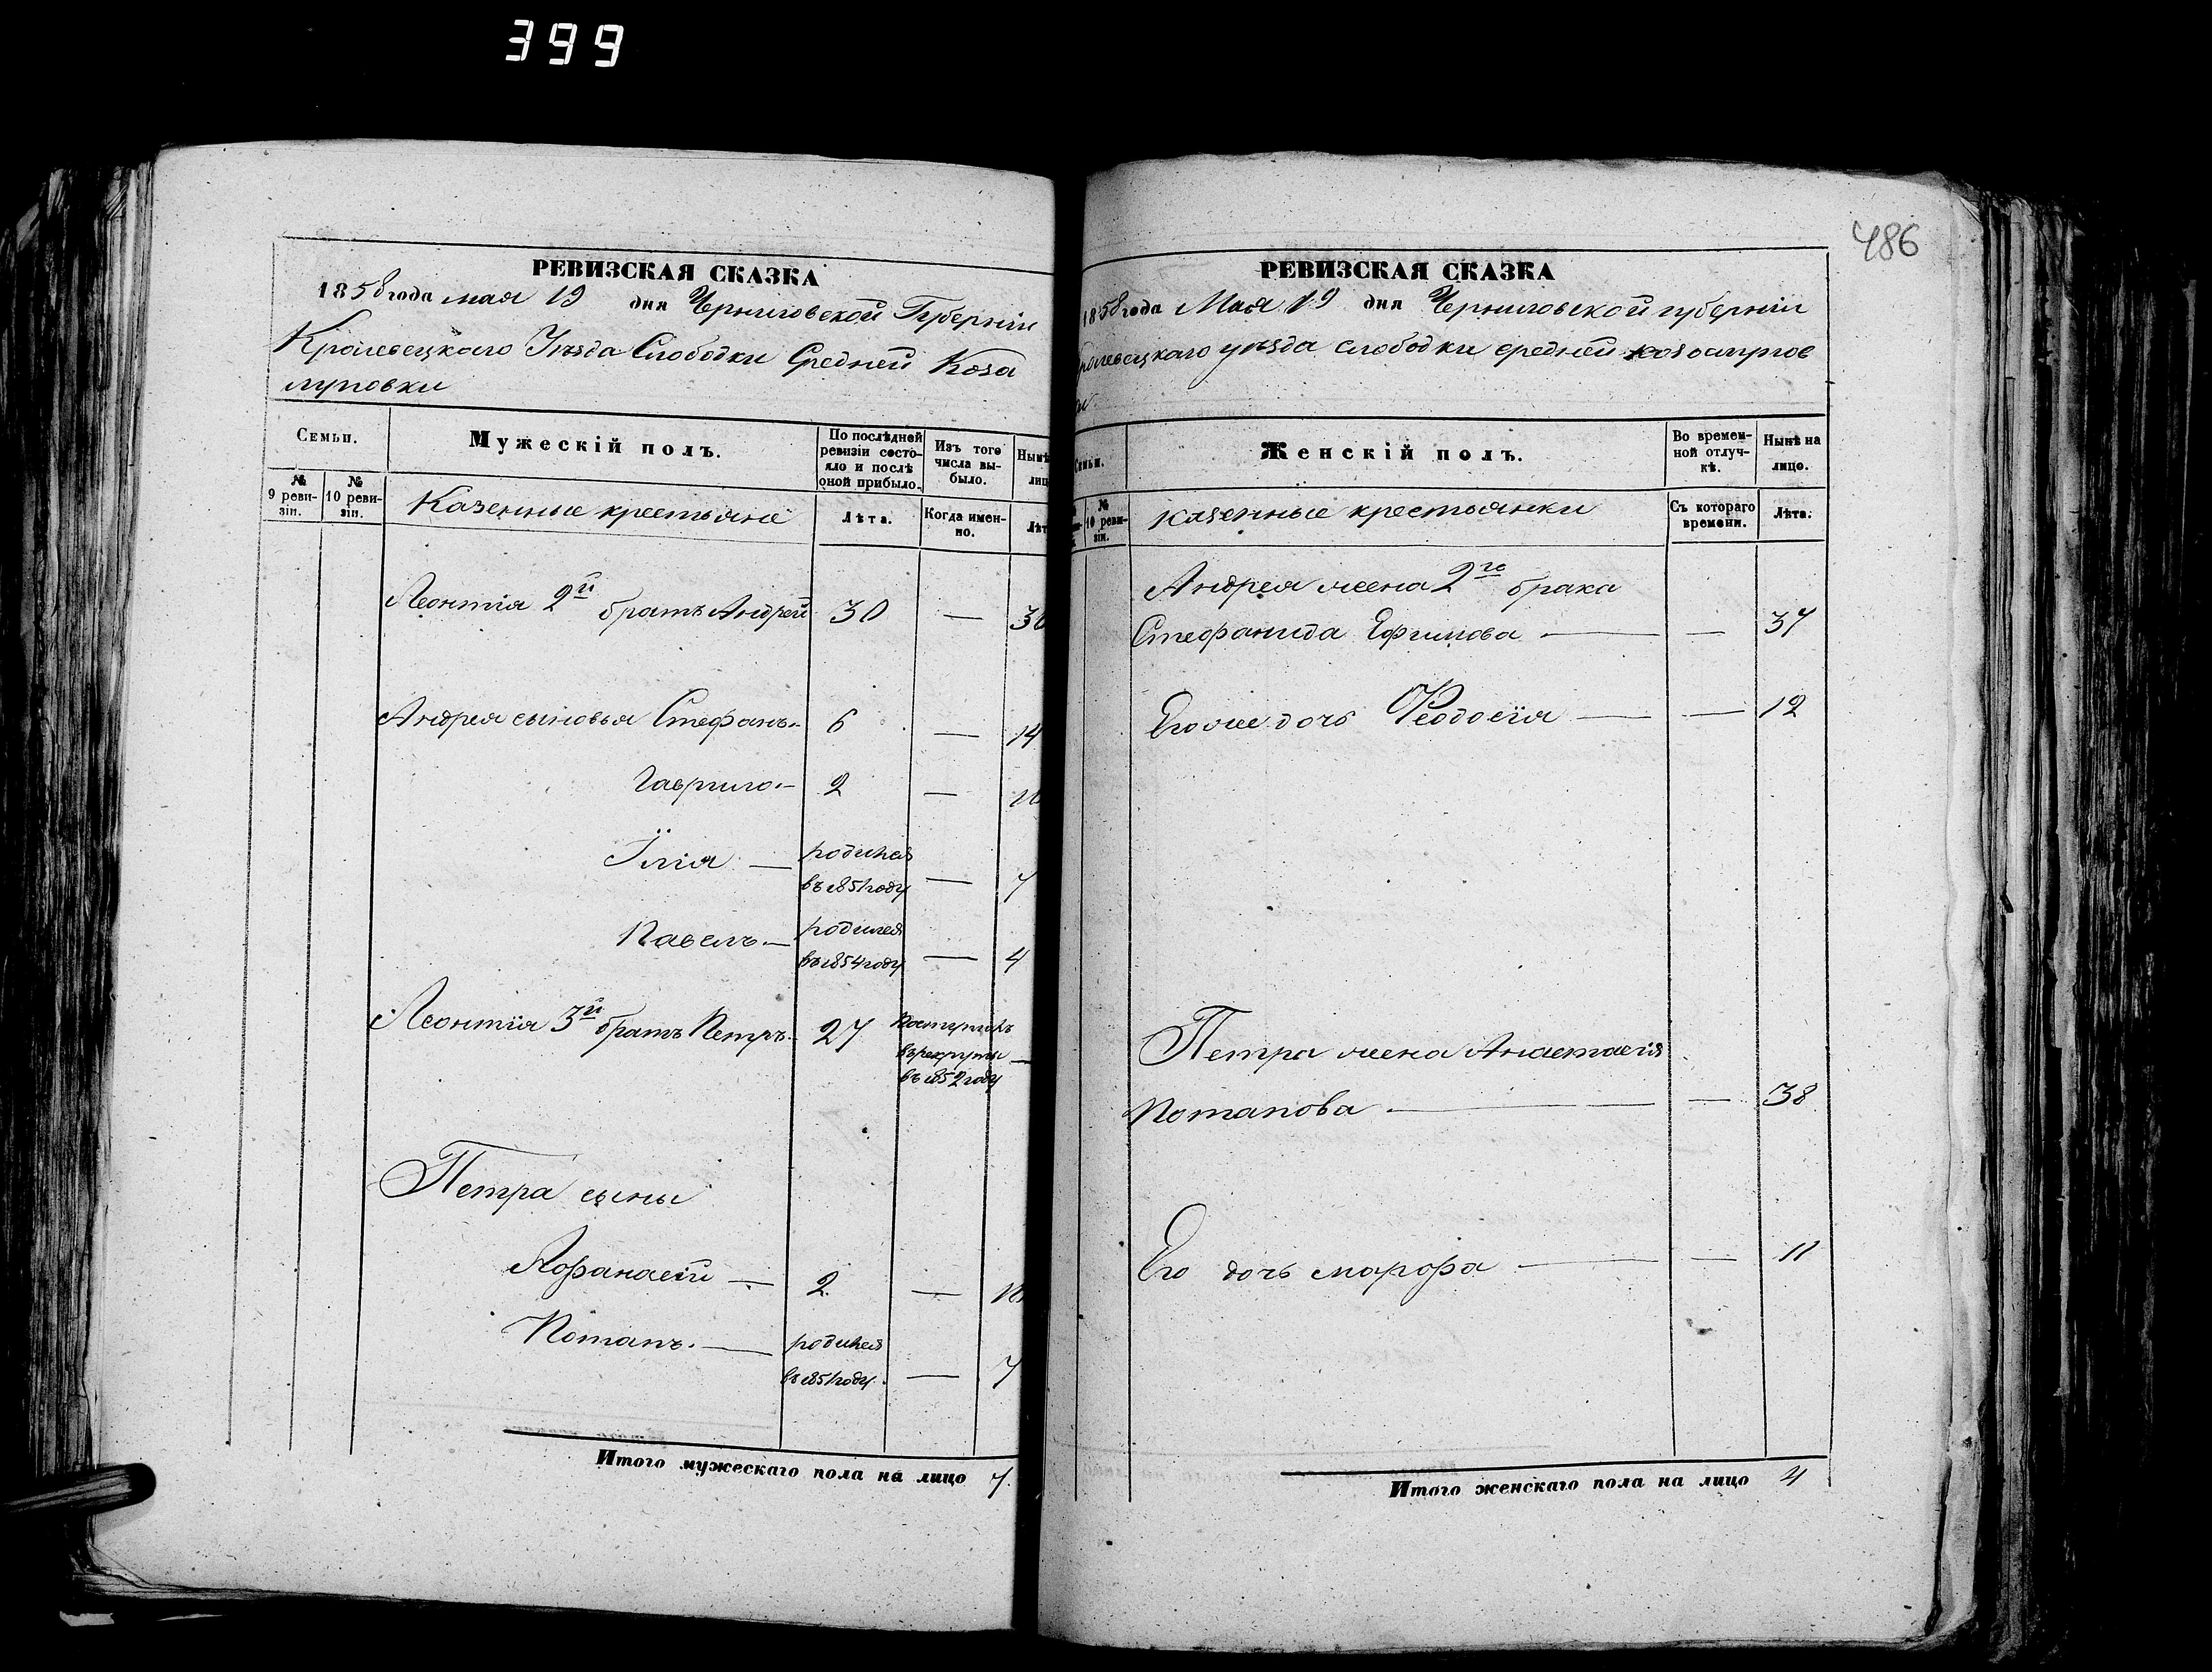 399
486
РЕВИЗСКАЯ СКАЗКА
1858 года мая 19 дня Черниговской Губерніи
Кролевецкаго Уѣзда Слободки Средней Коза
луповки
Семьи.
Мужескій полъ.
По послѣдней ревизіи состояло и послѣ оной прибыло.
Изъ того числа выбыло.
№ 9 ревизіи.
№ 10 ревизіи.
Казенные крестьяне
Лѣта.
Когда именно.
Леонтія 2й братъ Андрей 30 —
Андрея сыновья Стефанъ 6 — 14
Гаврило 2 —
Їлія — родился
въ 1851 году — 7
Павелъ — родился
въ 1854 году — 4
Леонтія 3й братъ Петръ 27 Поступилъ
въ рекруты —
въ 1852 году
Петра сыны
Афанасій — 2 —
Потапъ — родился
въ 1851 году — 7
Итого мужескаго пола на лицо 7.
РЕВИЗСКАЯ СКАЗКА
1858 года Мая 19 дня Черниговской губерніи
уѣзда слободки средней
Женскій полъ.
Во временной отлучкѣ.
Нынѣ на лицо.
№ 10 ревизіи.
казенные крестьянки
Съ котораго времени.
Лѣта.
Андрея жена 2го брака
Стефанида Ефимова — — 37
Его же дочь Феодосія — — 12
Петра жена Анастасія
Потапова — — 38
Его дочь марфа — — 11
Итого женскаго пола на лицо 4